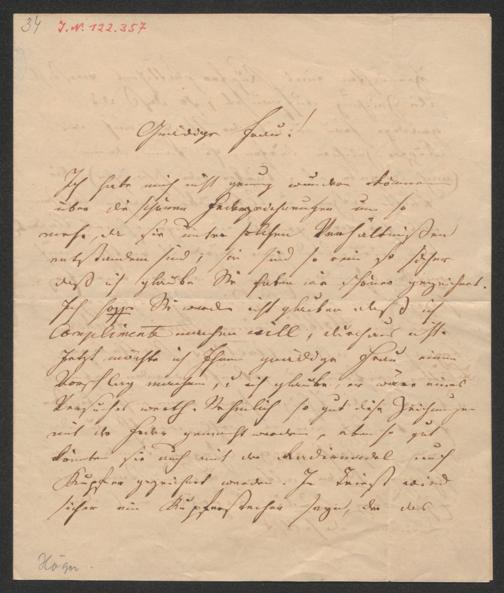 34
I.N. 122.357
Gnädige Frau!
Ich habe mich nicht genug wundern können
über die schönen Federzeichnungen um so
mehr, da sie unter solchen Verhältnißen
entstanden sind, sie sind so rein so sicher
daß ich glaube Sie haben nie schöner gezeichnet.
Ich hoffe Sie werden nicht glauben daß ich
Complimente machen will, durchaus nicht.
Jetzt möchte ich Ihnen gnädige Frau einen
Vorschlag machen, u ich glaube, er wäre eines
Versuches werth. Nehmlich so gut diese Zeichnungen
mit der Feder gemacht werden, eben so gut
könnten sie auch mit der Radiernadel auf
Kupfer gezeichnet werden. In Triest wird
sicher ein Kupferstecher sein, der das
Högr.